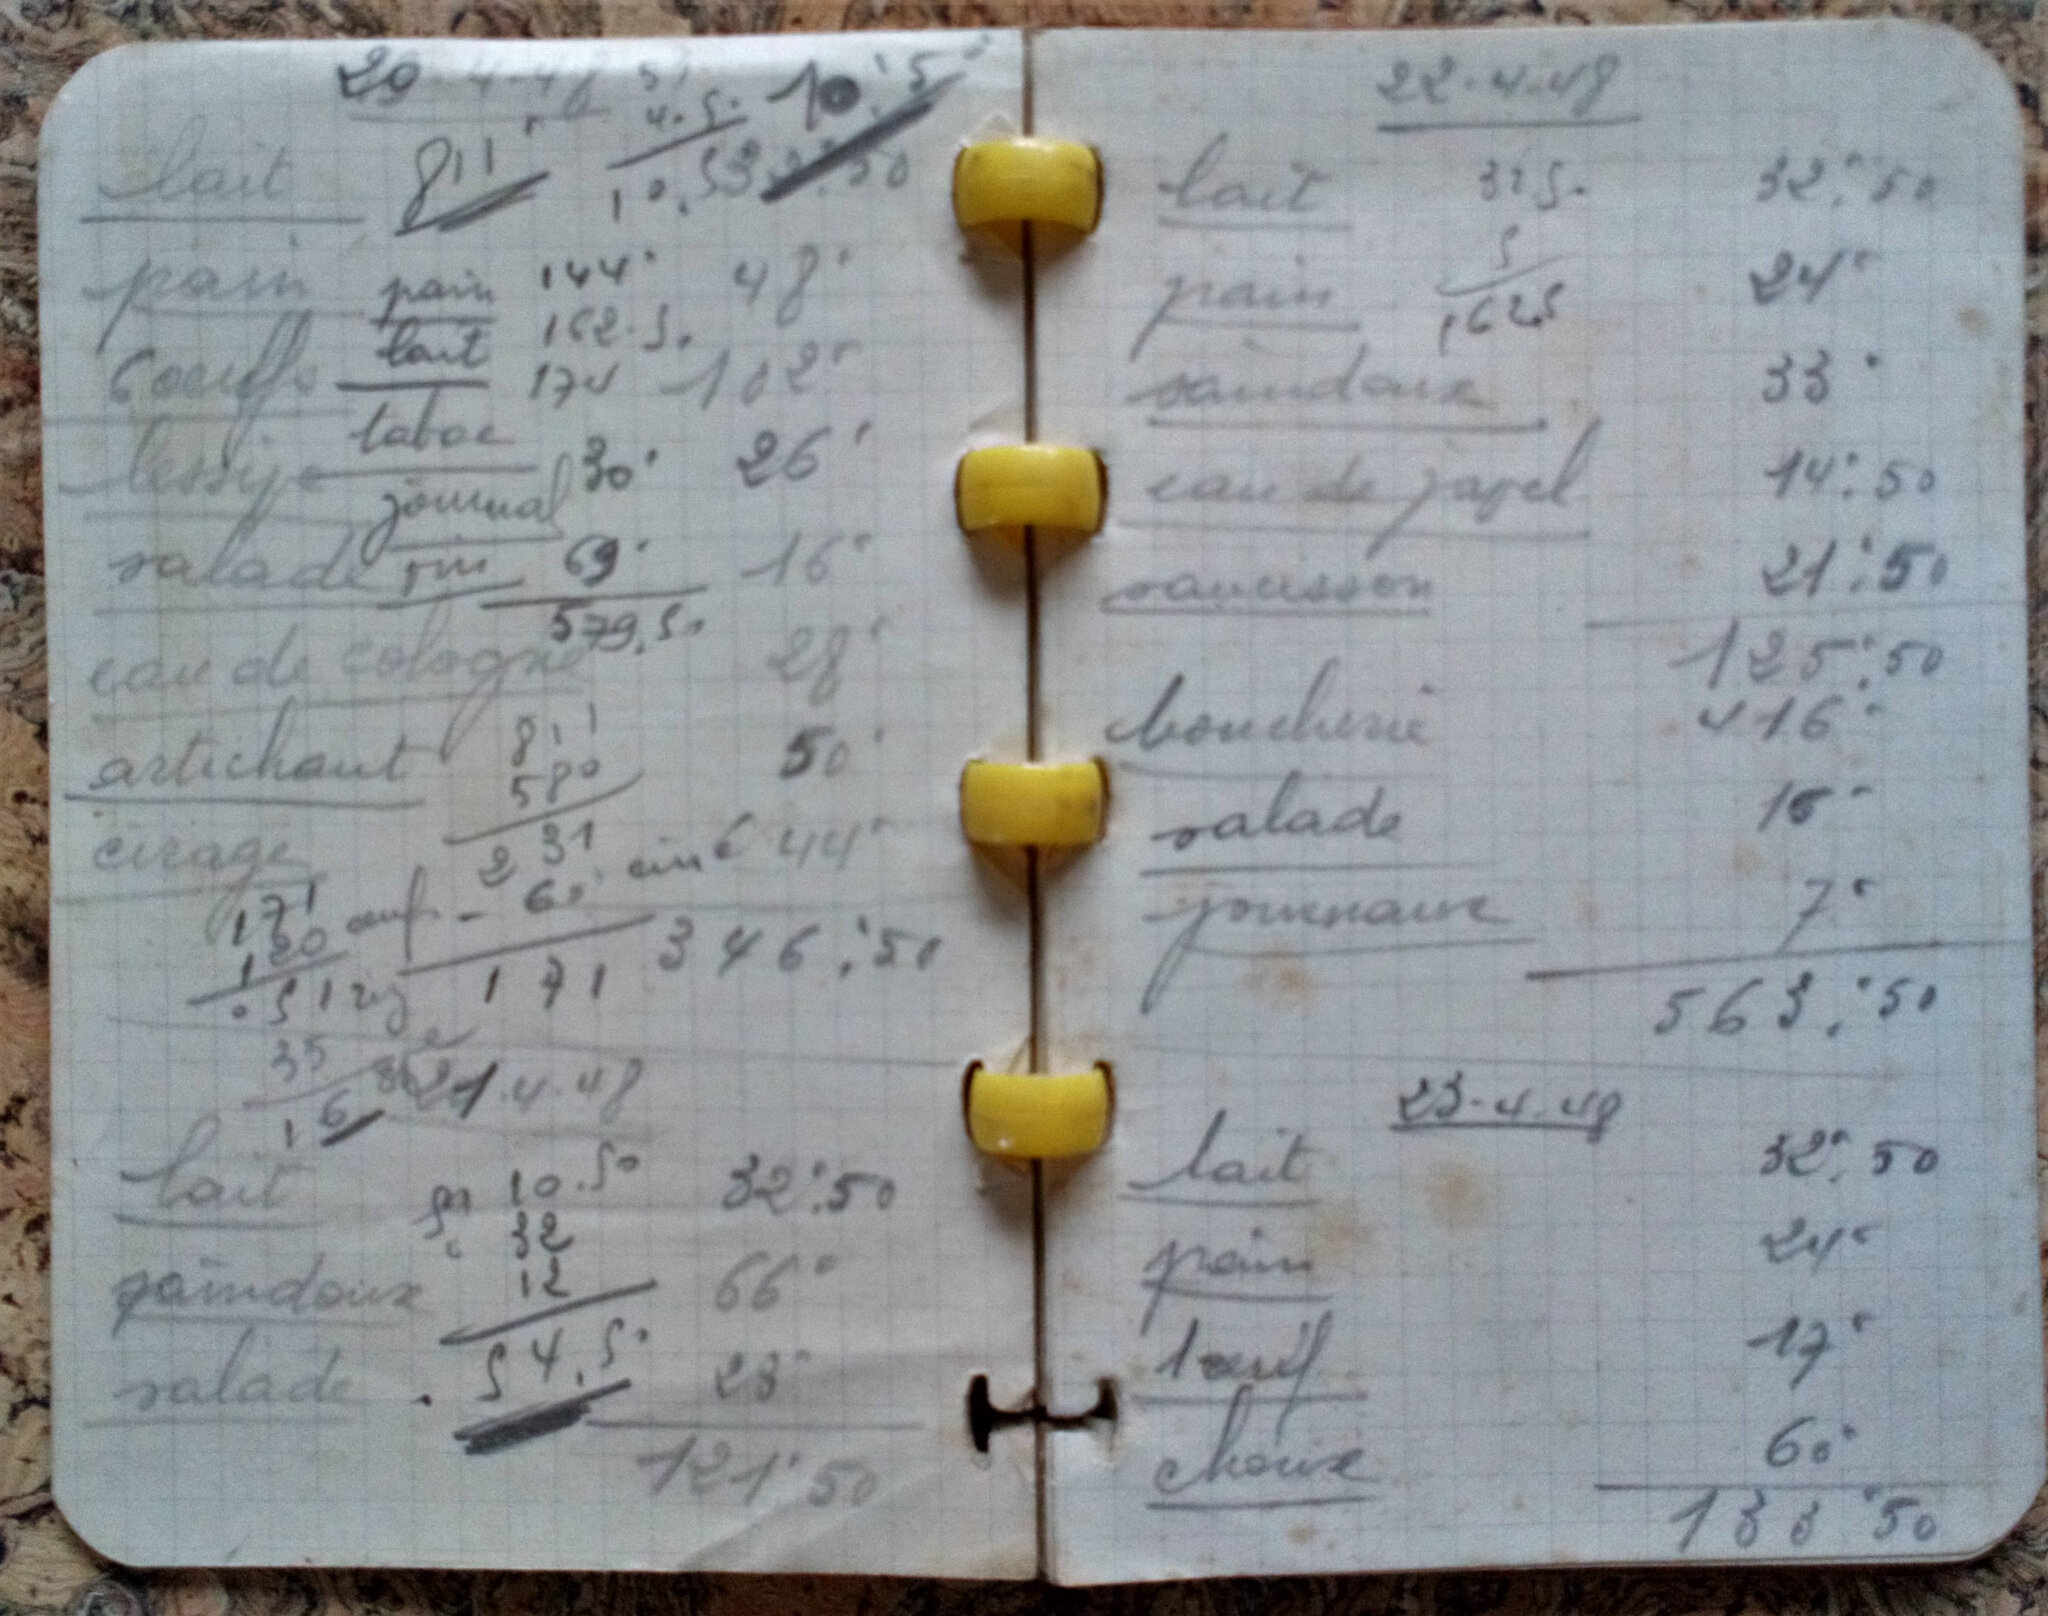 20-4-48
lait 811' 32.50
10.5
pain pain 144' 48'
lait 162.5.
6 oeufs 174 102'
tabac
lessive 30' 26'
journal
salade vin 69' 16'
579.50
eau de cologne 28'
artichaut 811 50'
580
cirage 231 44'
171 60
120 171 346'.50
51
35
16
21-4-48
lait 10.50 32'.50
32
saindoux 12 66'
54.50
salade 23'
121'50
22-4-48
lait 32'.50
pain 24'
162.5
saindoux 33'
eau de javel 14'.50
saucisson 21'.50
125'.50
boucherie 416'
salade 15'
journaux 7'
563.'50
23-4-48
lait 32'.50
pain 24'
1 oeuf 17'
choux 60'
133'50